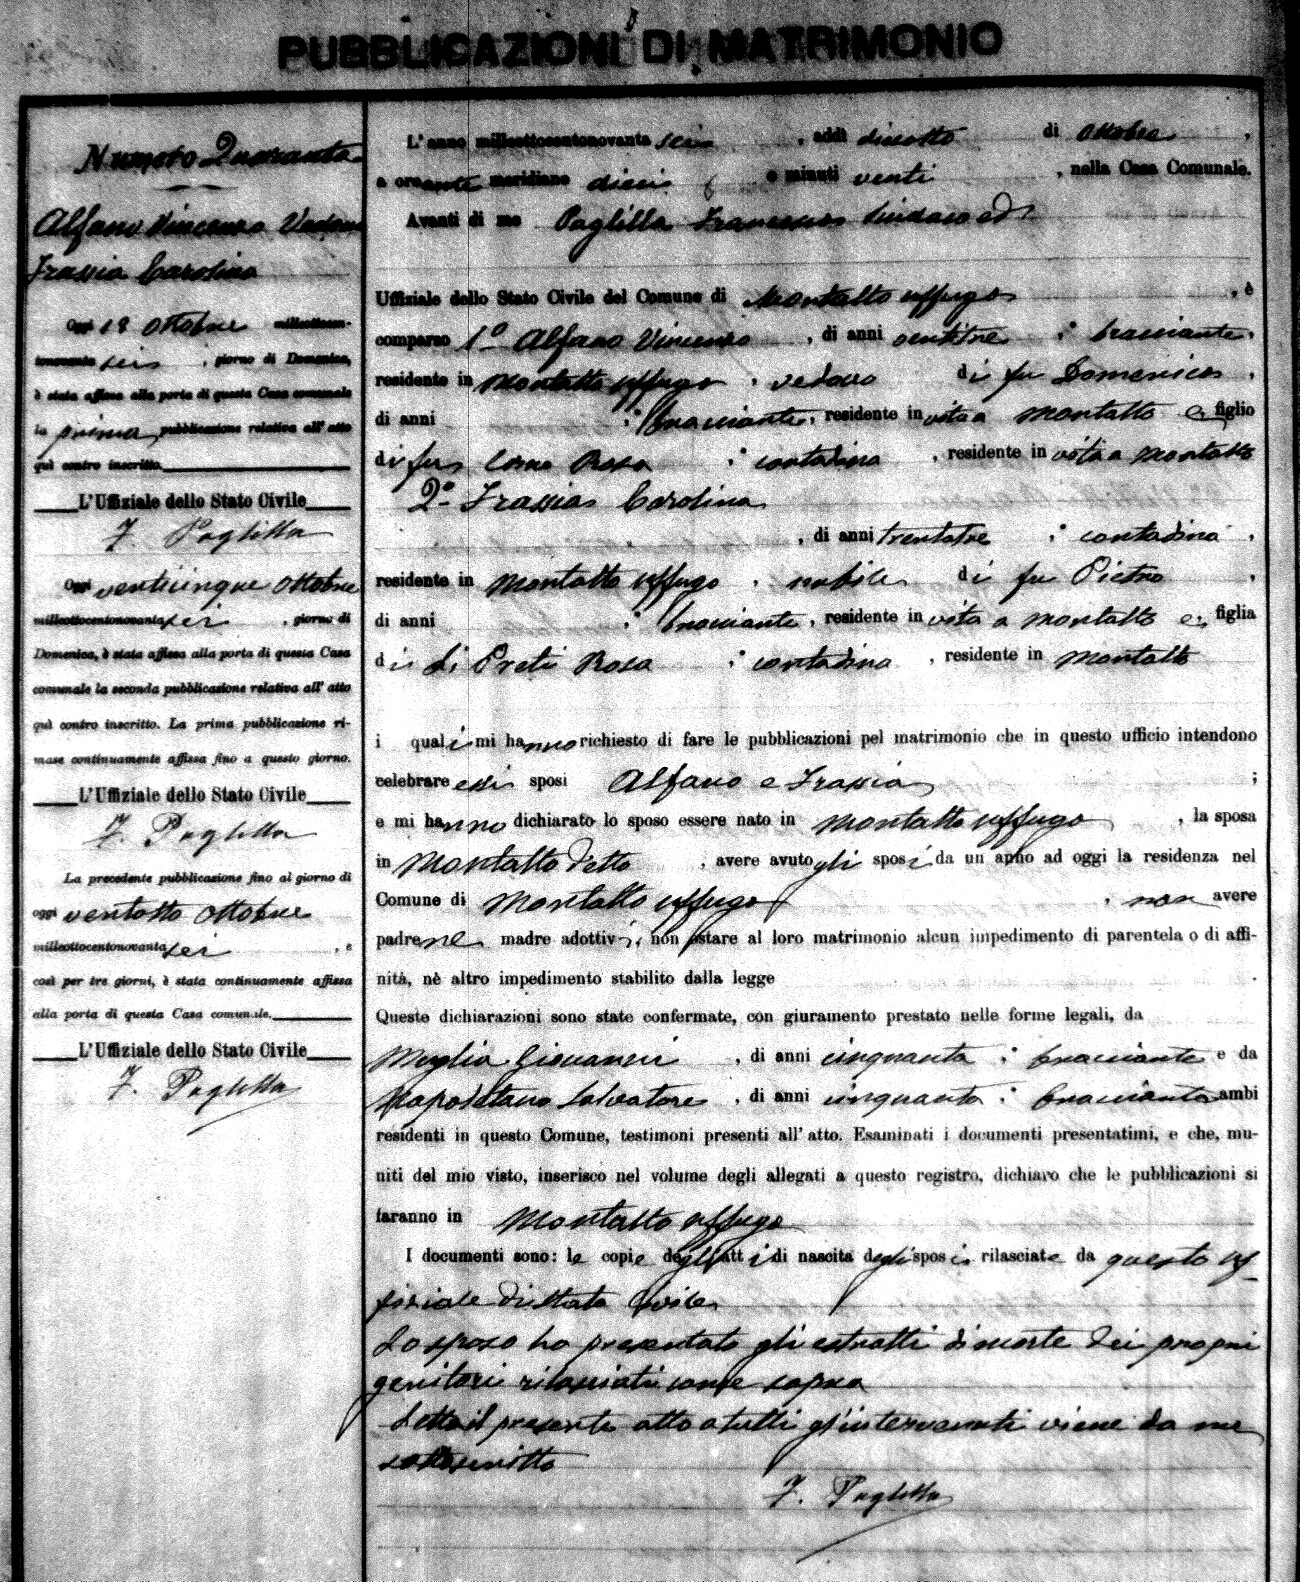 PUBBLICAZIONI DI MATRIMONIO
Numero Quaranta
Alfano Vincenzo Vedovo
Frassia Carolina
Oggi 18 Ottobre milleottocen-
tonovanta sei, giorno di Domenica,
è stata affissa alla porta di questa Casa comunale
la prima pubblicazione relativa all'atto
quì contro inscritto.
L'Uffiziale dello Stato Civile
F. Paglilla
Oggi venticinque Ottobre
milleottocentonovanta sei, giorno di
Domenica, è stata affissa alla porta di questa Casa
comunale la seconda pubblicazione relativa all'atto
quì contro inscritto. La prima pubblicazione ri-
mase continuamente affissa fino a questo giorno.
L'Uffiziale dello Stato Civile
F. Paglilla
La precedente pubblicazione fino al giorno di
oggi ventotto Ottobre
milleottocentonovanta sei, e
così per tre giorni, è stata continuamente affissa
alla porta di questa Casa comunale.
L'Uffiziale dello Stato Civile
F. Paglilla
L'anno milleottocentonovanta sei, addì diciotto di Ottobre,
a ore ante meridiane dieci e minuti venti, nella Casa Comunale.
Avanti di me Paglilla Francesco Sindaco ed
Uffiziale dello Stato Civile del Comune di Montalto Uffugo, è
comparso 1º Alfano Vincenzo, di anni ventitre, bracciante,
residente in Montalto Uffugo, vedovo di fu Domenico,
di anni , bracciante, residente in vita a Montalto e figlio
di fu Rosa, contadina, residente in vita a Montalto
2º Frassia Carolina
, di anni trentatre, contadina,
residente in Montalto Uffugo, nubile di fu Pietro,
di anni , bracciante, residente in vita a Montalto e figlia
di Li Preti Rosa, contadina, residente in Montalto
i quali mi hanno richiesto di fare le pubblicazioni pel matrimonio che in questo ufficio intendono
celebrare essi sposi Alfano e Frassia;
e mi hanno dichiarato lo sposo essere nato in Montalto Uffugo, la sposa
in Montalto detto, avere avuto gli sposi da un anno ad oggi la residenza nel
Comune di Montalto Uffugo, non avere
padre ne madre adottivi, non ostare al loro matrimonio alcun impedimento di parentela o di affi-
nità, nè altro impedimento stabilito dalla legge.
Queste dichiarazioni sono state confermate, con giuramento prestato nelle forme legali, da
Meglia Giovanni, di anni cinquanta, bracciante e da
Napolitano Salvatore, di anni cinquanta, bracciante ambi
residenti in questo Comune, testimoni presenti all'atto. Esaminati i documenti presentatimi, e che, mu-
niti del mio visto, inserisco nel volume degli allegati a questo registro, dichiaro che le pubblicazioni si
faranno in Montalto Uffugo
I documenti sono: le copie degli atti di nascita degli sposi rilasciate da questo Uf-
fiziale di Stato Civile
Lo sposo ha presentato gli estratti di morte dei propri
genitori rilasciati come sopra
Letto il presente atto a tutti gl'intervenuti viene da me
sottoscritto
F. Paglilla